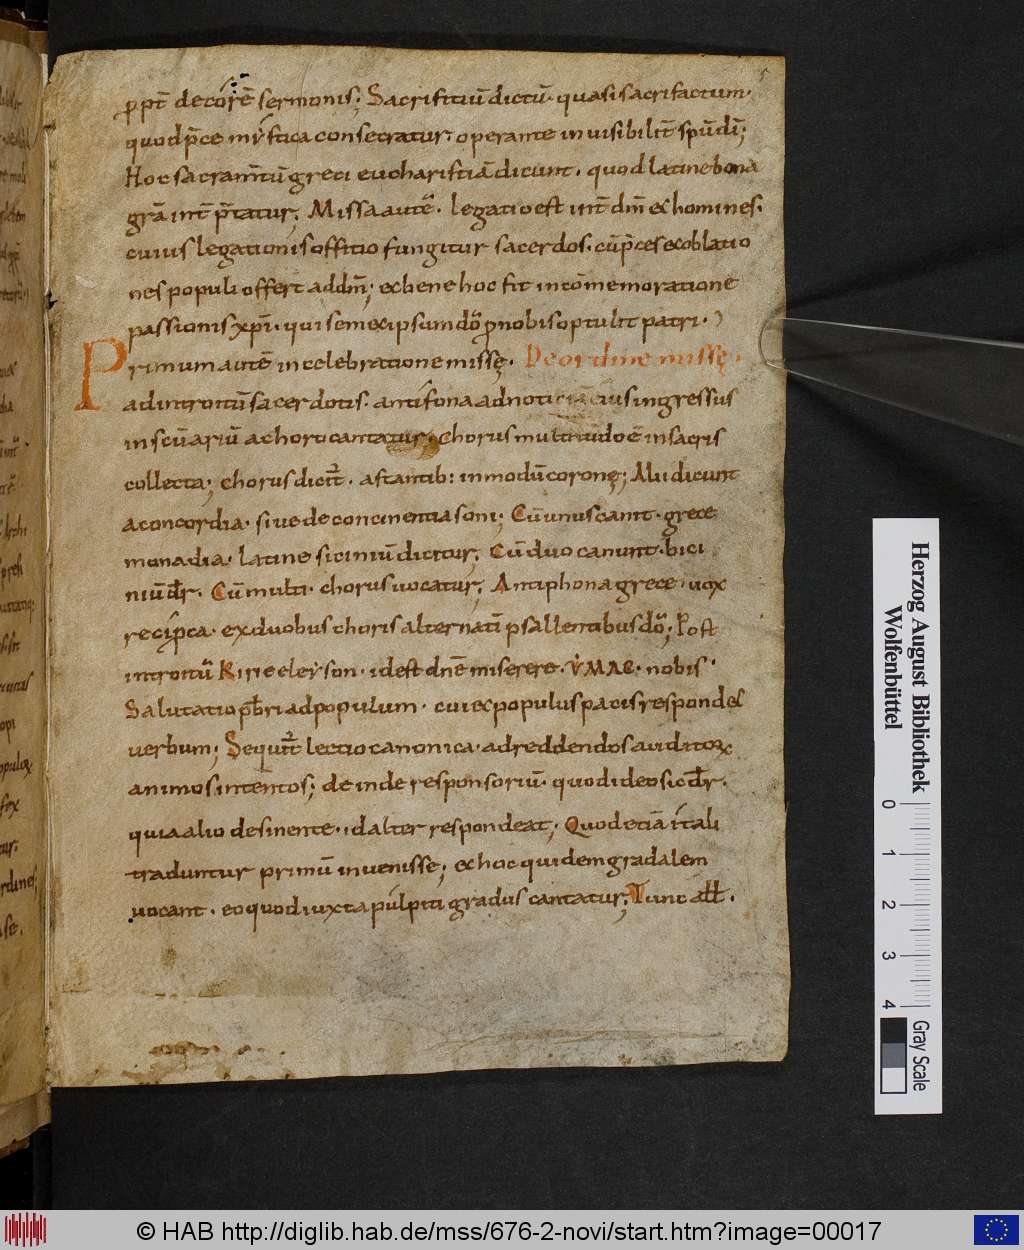 5
ppt̄ decorē sermonis; Sacrifitiū dictū· quasi sacrifactum·
quod p̄ce mẏstica consecratur· operante inuisibilit̄ spū dī;
Hoc sacram̄tū greci eucharistiā dicunt· quod latine bona
grā int̄ p̄tatur; Missa autē· legatio est int̄ dm̄ & homines·
cuius legationis offitio fungitur sacerdos· cū p̄ces & oblatio
nes populi offert ad dm̄; & bene hoc fit in cōmemoratione
passionis xp̄i· qui semet ipsum dō p nobis optulit patri·
Primum autē in celebratione missę· De ordine missę·
ad introitū sacerdotis· antifona ad noticiā eius ingressus
in scūariū a choro cantatur; Chorus multitudo ē in sacris
collecta; chorus dicit̄· astantib: in modū coronę; Alii dicunt
a concordia· siue de concinentia soni; Cū unus canit· grece
monadia· latine siciniū dicitur; Cū duo canunt· bici
niū dr̄· Cū multi· chorus uocatur; Antiphona grece· uox
recip̄ca· ex duobus choris alternatī psallentibus dō; Post
introitū Kirieeleẏson· id est dnē miserere· ẎMAC· nobis·
Salutatio pbr̄i ad populum· cui & populus pacis respondet
verbum; Sequit̄ lectio canonica· ad reddendos auditoꝝ
animos intentos; de inde responsoriū· quod ideo sic dr̄·
quia alio desinente· id alter respondeat; Quod etiā itali
traduntur primū inuenisse; & hoc quidem gradalem
uocant· eo quod iuxta pulpiti gradus cantatur; Tunc all̄·
Herzog August Bibliothek
Wolfenbüttel
0 1 2 3 4
Gray Scale
© HAB http://diglib.hab.de/mss/676-2-novi/start.htm?image=00017